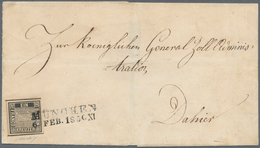 Zur Koeniglichen General Zoll Adminis-
tration,
Dahier
MÜNCHEN
FEB. 1850 XI